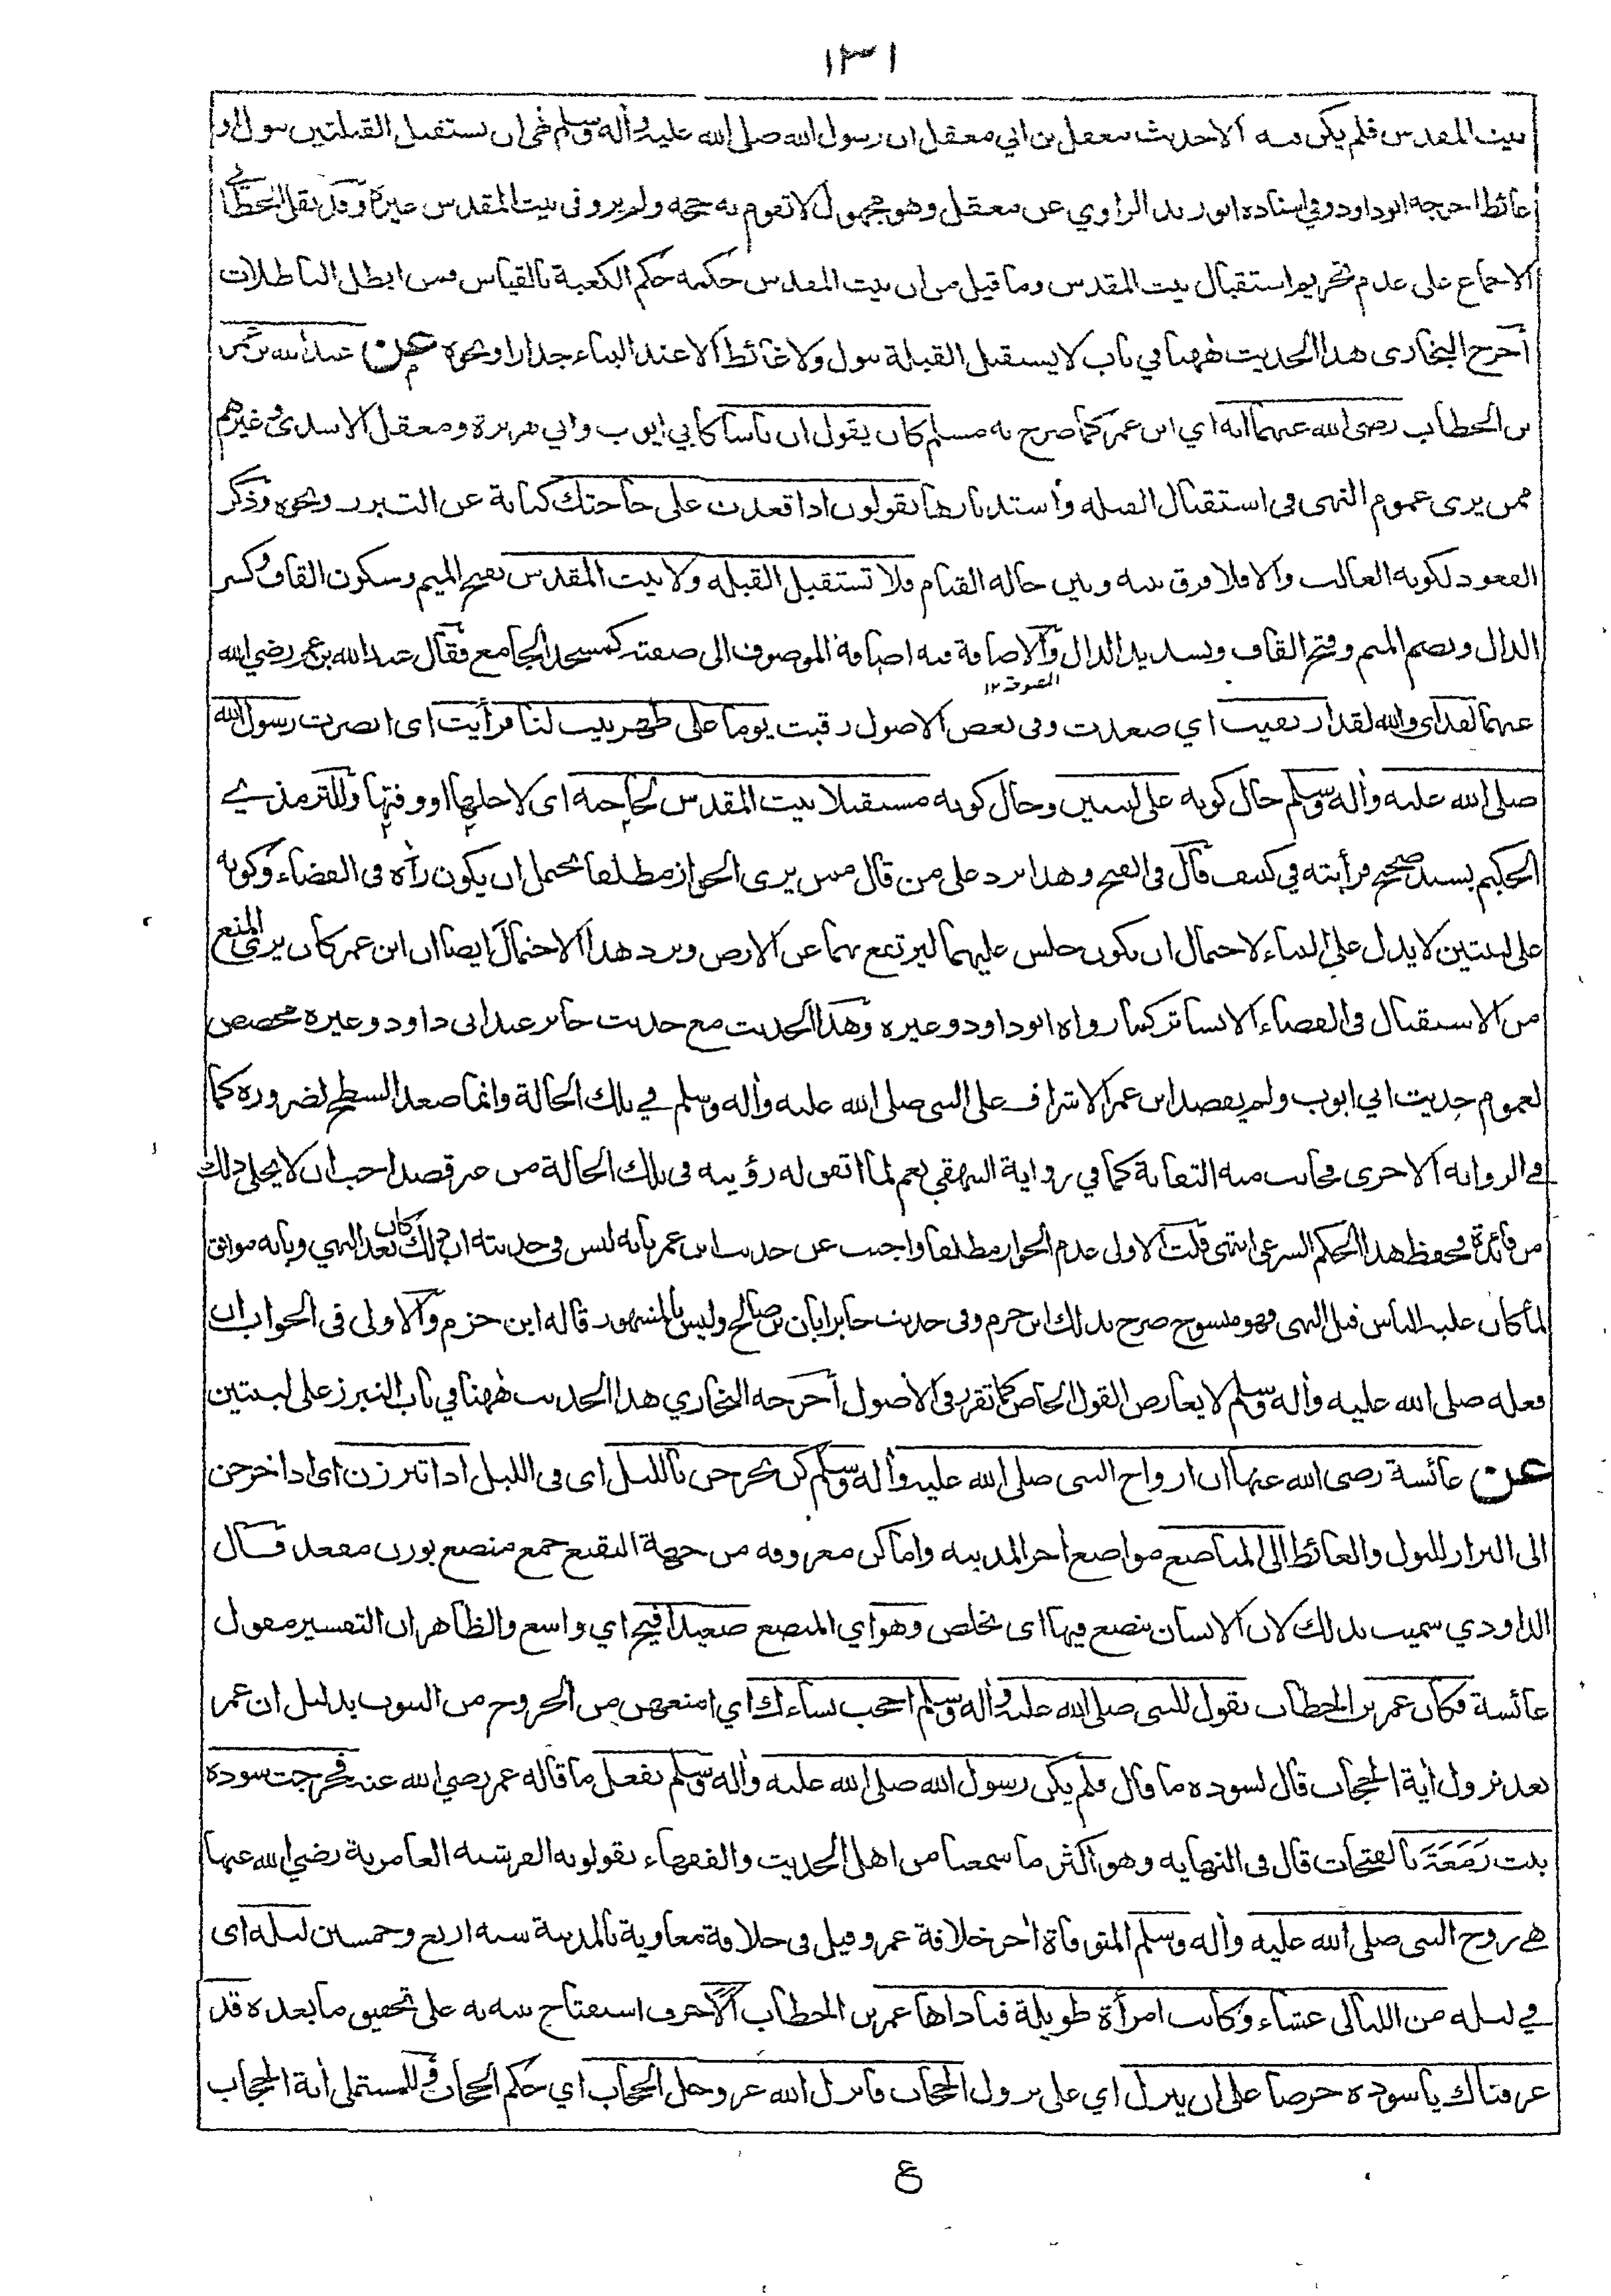 ١٣١
بيت المقدس فلم يكن فيه الا حديث معقل بن ابي معقل ان رسول الله صلى الله عليه وأله وسلم نهى ان نستقبل القبلتين ببول او
غائط اخرجه ابو داود وفي اسناده ابو زيد الراوي عن معقل وهو مجهول لا تقوم به حجة ولم يرو فى بيت المقدس غيره وقد نقل الخطابي
الاجماع على عدم تحريم استقبال بيت المقدس وما قيل من ان بيت المقدس حكمه حكم الكعبة بالقياس فمن ابطل الباطلات
أخرج البخارى هذا الحديث ههنا في باب لا يستقبل القبلة ببول ولا غائط الا عند البناء جدار او نحوه عن عبد الله بن عمر
بن الخطاب رضى الله عنهما انه اي ابن عمر كما صرح به مسلم كان يقول ان ناسا كابي ايوب وابي هريرة ومعقل الاسدى وغيرهم
ممن يرى عموم النهى فى استقبال القبله واستدبارها يقولون اذا قعدت على حاجتك كناية عن التبرز ونحوه وذكر
القعود لكونه الغالب والا فلا فرق بينه وبين حالة القيام فلا تستقبل القبله ولا بيت المقدس بفتح الميم وسكون القاف وكسر
الدال وبضم الميم وفتح القاف وتشديد الدال والاضافة فيه اضافة الموصوف الى صفته كمسجد الجامع فقال عبد الله بن عمر رضي الله
عنهما لقد اى والله لقد ارتقيت اي صعدت وفى بعض الاصول رقيت يوما على ظهر بيت لنا فرأيت اى ابصرت رسول الله
صلى الله عليه وأله وسلم حال كونه على لبنتين وحال كونه مستقبلا بيت المقدس لحاجته اى لاجلها او وقتها وللترمذي
الحكيم بسند صحيح فرأيته في كنيف قال فى الفتح وهذا يرد على من قال ممن يرى الجواز مطلقا يحتمل ان يكون رآه فى الفضاء وكونه
على لبنتين لا يدل على البناء لاحتمال ان يكون جلس عليهما ليرتفع بهما عن الارض ويرد هذا الاحتمال ايضا ان ابن عمر كان يرى المنع
من الاستقبال فى الفضاء الا بساتر كما رواه ابو داود وغيره وهذا الحديث مع حديث جابر عند ابى داود وغيره مخصص
لعموم حديث ابي ايوب ولم يقصد ابن عمر الاشراف على النبى صلى الله عليه وأله وسلم في تلك الحالة وانما صعد السطح لضرورة كما
في الرواية الاخرى فحانت منه التفاتة كما في رواية البيهقي نعم لما اتفق له رؤيته فى تلك الحالة من غير قصد احب ان لا يخلى ذلك
من فائدة فحفظ هذا الحكم الشرعى انتهى قلت الاولى عدم الجواز مطلقا واجيب عن حديث ابن عمر بانه ليس فى حديثه ان ذلك كان بعد النهي وبانه موافق
لما كان عليه الناس قبل النهى فهو منسوخ صرح بذلك ابن حزم وفى حديث جابر ابان بن صالح وليس بالمشهور قاله ابن حزم والاولى فى الجواب ان
فعله صلى الله عليه وأله وسلم لا يعارض القول الخاص كما تقرر فى الأصول أخرجه البخاري هذا الحديث ههنا في باب التبرز على لبنتين
عن عائشة رضى الله عنها ان ازواج النبى صلى الله عليه وأله وسلم كن يخرجن بالليل اى فى الليل اذا تبرزن اى اذا خرجن
الى البراز للبول والغائط الى المناصع مواضع أخر المدينه واماكن معروفه من جهة البقيع جمع منصع بوزن مفعل قال
الداودي سميت بذلك لان الانسان ينصع فيها اى يخلص وهو اي المنصع صعيد افيح اي واسع والظاهر ان التفسير مقول
عائشة فكان عمر بن الخطاب يقول للنبى صلى الله عليه وأله وسلم احجب نساءك اي امنعهن من الخروج من البيوت بدليل ان عمر
بعد نزول اية الحجاب قال لسوده ما قال فلم يكن رسول الله صلى الله عليه وأله وسلم يفعل ما قاله عمر رضي الله عنه فخرجت سوده
بنت زَمَعَةَ بالفتحات قال فى النهايه وهو اكثر ما سمعنا من اهل الحديث والفقهاء يقولونه القرشيه العامرية رضي الله عنها
هى زوج النبى صلى الله عليه وأله وسلم المتوفاة أخر خلافة عمر وقيل فى خلافة معاوية بالمدينة سنه اربع وخمسين ليله اى
في ليله من الليالى عشاء وكانت امرأة طويلة فناداها عمر بن الخطاب ألا حرف استفتاح ينبه به على تحقيق ما بعده قد
عرفناك يا سوده حرصا على ان ينزل اي على نزول الحجاب فانزل الله عز وجل الحجاب اي حكم الحجاب وللمستملى أية الحجاب